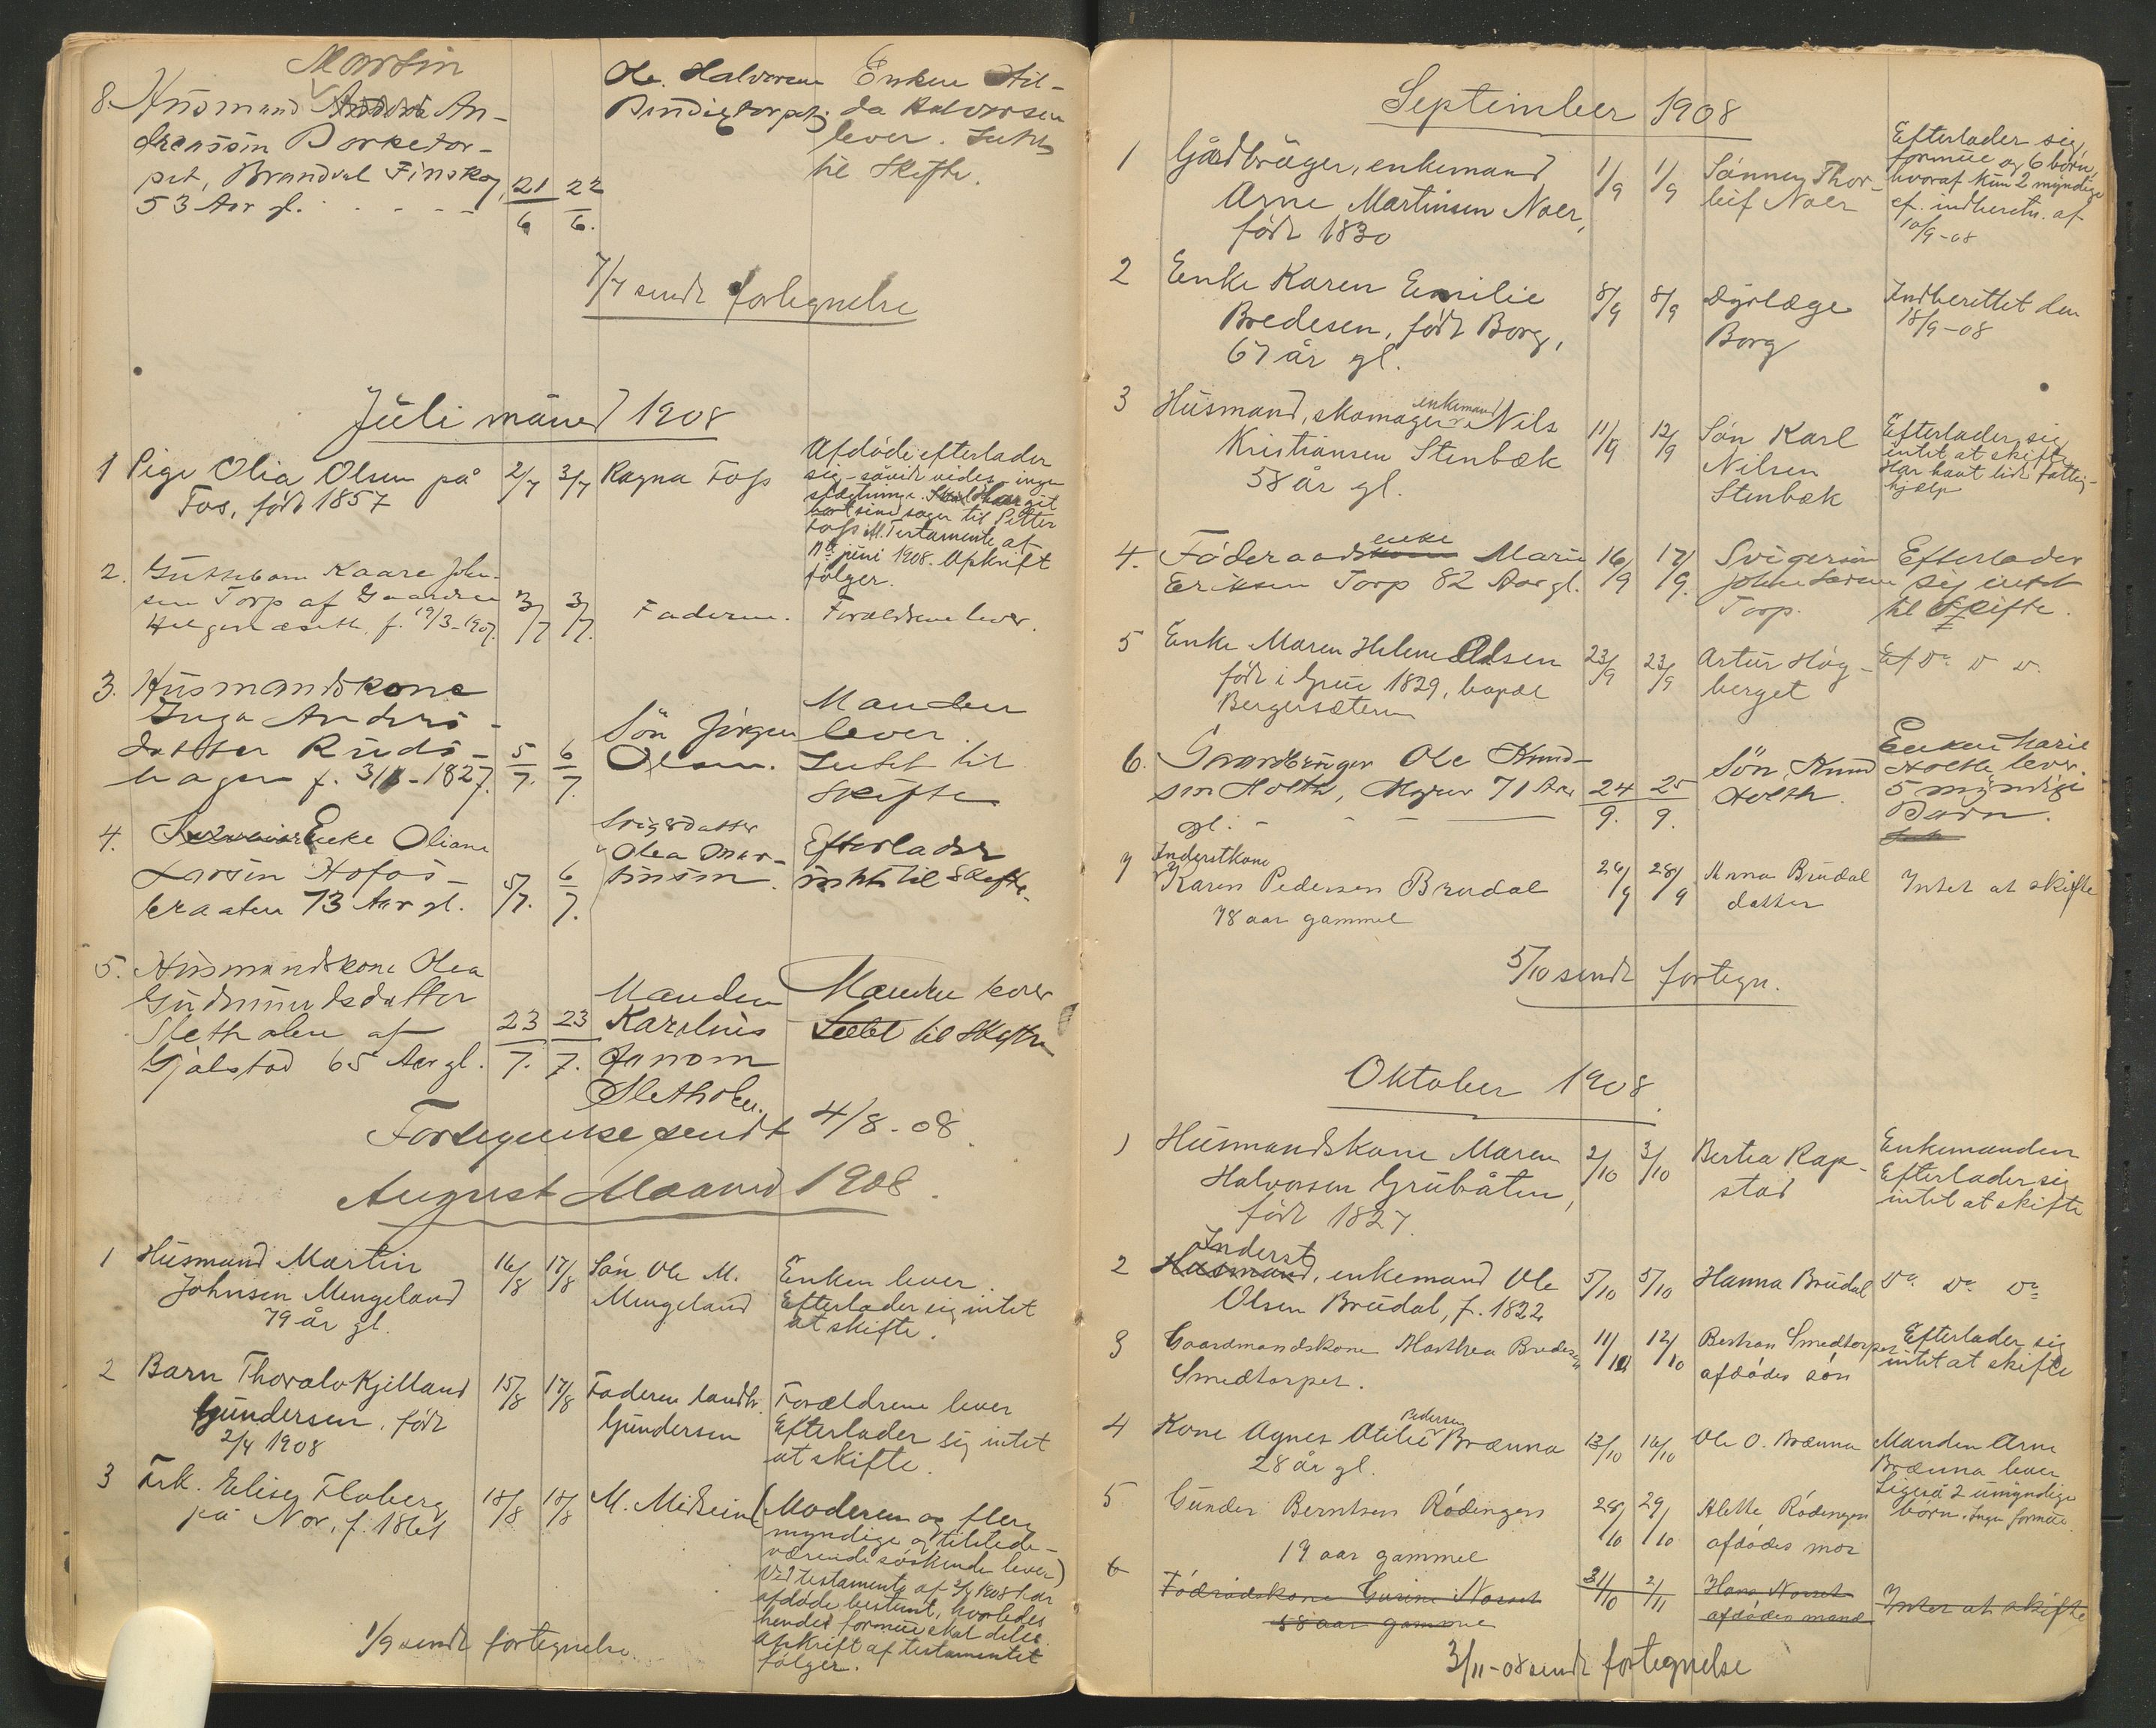 Martin
8. Husmand An-
dreassen Borketor-
pet, Brandval Finskog, 21/6 22/6.
53 Aar gl.
Ole Halvorsen
Enken Hil-
da Halvorsen
lever. Intet
til Skifte.
7/7 sendt fortegnelse
Juli måned 1908
1 Pige Olia Olsen på 2/7 3/7 Ragna Foss
Fos, født 1857
Afdøde efterlader
sig såvidt vides ingen
slægtninge. Skal har git
bort sine sager til Petter
Foss ifl. Testamente af
juni 1908. Afskrift
følger.
2. Guttebarn Kaare John-
sen Torp af Gaarden 3/7 3/7. Faderen. Forældrene lever.
f. 19/3-1907.
3. Husmandskone
Inga Anders-
datter Ruds- 5/7. 6/7.
hagen f. 1827.
Søn Jørgen
Olsen.
Manden
lever.
Intet til
Skifte
4. Enke Oliane
Larsen Hofos-
braaten 73 Aar gl. 5/7. 6/7.
Svigerdatter
Olea Mar-
tinsen.
Efterlader
intet til Skifte.
5. Husmandskone Olea
Gudmundsdatter
Sletholen af 23/7. 23/7.
Gjølstad 65 Aar gl.
Manden
Karelius
Jansen
Sletholen.
Manden lever
Intet til Skifte
Fortegnelse sendt 4/8-08.
August Maaned 1908.
1 Husmand Martin 16/8 17/8 Søn Ole M. Enken lever.
Johnsen Mengeland Mengeland Efterlader sig intet
79 år gl. at skifte.
2 Barn Thoralv Kjelland 15/8 17/8 Faderen landh. Forældrene lever
Gundersen, født Gundersen Efterlader sig intet
2/4 1908 at skifte.
3 Frk. Elise Floberg 18/8 18/8
på Nor, f. 1861
(Moderen og flere
myndige og tilstede-
værende søskende lever)
Ved testamente af 1908 har
afdøde bestemt, hvorledes
hendes formue skal deles.
Afskrift af testamentet
følger.
1/9 sendt fortegnelse.
September 1908
1 Gårdbruger, enkemand 1/9 1/9 Sønnen Thor-
Arne Martinsen Noer, leif Noer
født 1830
Efterlader sig
formue og 6 børn,
hvoraf kun 2 myndige
cf. indberetn. af
10/9-08
2 Enke Karen Emilie 8/9 8/9 Dyrlæge Indberettet den
Bredesen, født Borg, Borg 18/9-08
67 år gl.
3 Husmand, skomager enkemand Nils 11/9 12/9 Søn Karl
Kristiansen Stenbæk Nilsen
58 år gl. Stenbæk
Efterlader sig
intet at skifte
Har havt lidt fattig-
hjælp
4. Føderaadsenke Marie 16/9 17/9. Svigersøn Efterlader
Eriksen Torp 82 Aar gl. Johan Larsen sig intet
Torp. til Skifte.
5 Enke Maren Helene Olsen 23/9 23/9 Artur Høg- Do Do Do
født i Grue 1829, bopæl berget
Bergersæteren
6. Gaardbruger Ole Knud-
sen Holth, 71 Aar 24/9. 25/9.
gl.
Søn, Knud
Holth.
Enken Marie
Holth lever.
5 myndige
Børn.
7 Inderstkone
Karen Pedersen Brudal 28/9 Anna Brudal Intet at skifte
78 aar gammel datter
5/10 sendt fortegn.
Oktober 1908.
1 Husmandskone Maren 2/10 3/10 Bertea Rap- Enkemanden
Halvorsen Grubråten, stad Efterlader sig
født 1827. intet at skifte
2 Inderst
Husmand, enkemand Ole 5/10 5/10 Hanna Brudal Do Do Do
Olsen Brudal, f. 1822
3 Gaardmandskone Marthea Bredesen 11/10 12/10 Bertran Smedtorpet Efterlader sig
Smedtorpet. afdødes søn intet at skifte
4 Kone Agnes Otilie Pedersen Brænna 13/10 16/10 Ole O. Brænna Manden Arne
28 år gl. Brænna lever
Ligeså 2 umyndige
børn. Ingen formue.
5 Gunder Berntsen Rødingen 28/10 29/10 Alette Rødengen
19 aar gammel afdødes mor
6 Føderådskone Gurine Norset 31/10 2/11 Hans Norset Intet at skifte
58 aar gamme afdødes mand
3/11-08 sendt fortegnelse